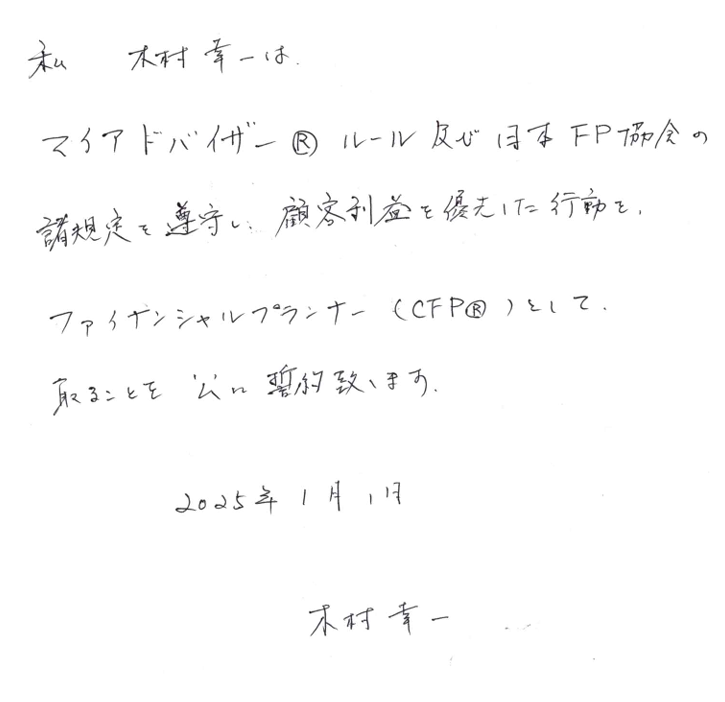 私　木村幸一は、
マイアドバイザー®ルール及び日本FP協会の
諸規定を遵守し、顧客利益を優先した行動を、
ファイナンシャルプランナー(CFP®)として、
取ることを公に誓約致します。
2025年1月1日
木村幸一